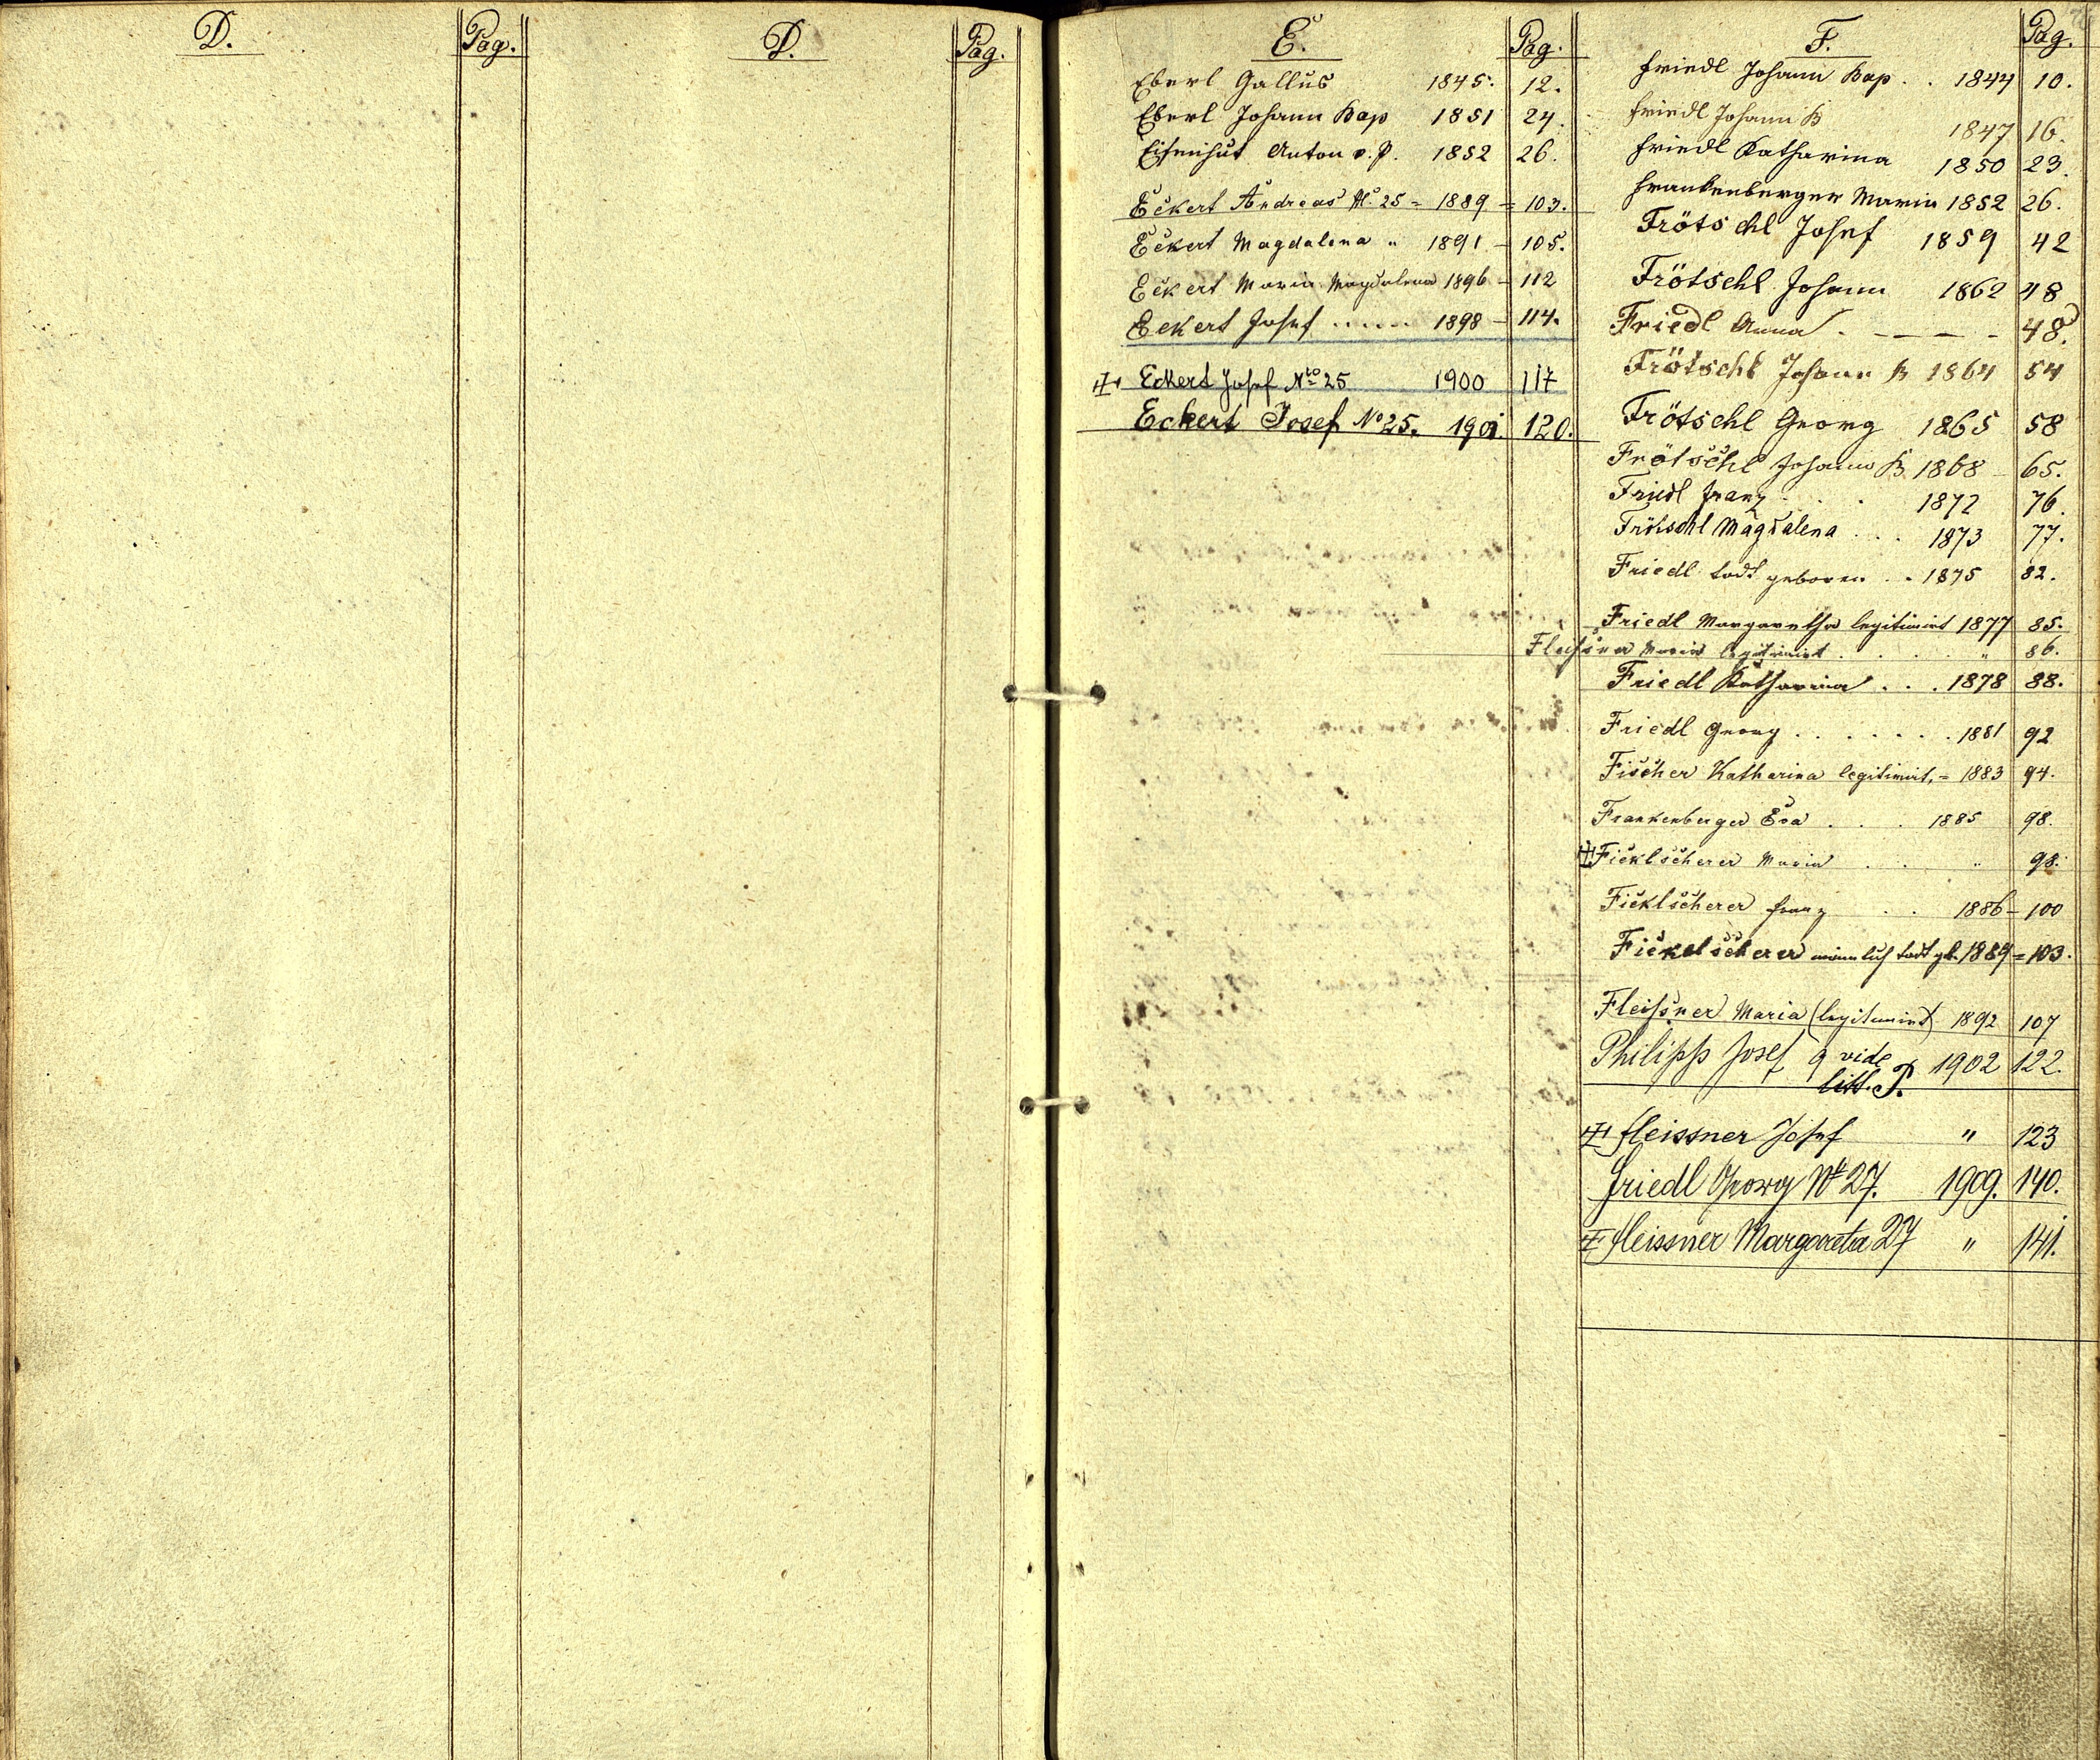 D.
Pag.
D.
Pag.
E.
Pag.
Eberl Gallus 1845. 12.
Eberl Johann Bap 1851 24.
Eisenhut Anton v. P. 1852 26.
Eckert Andreas N. 25 = 1889 = 103.
Eckert Magdalena " 1891 - 105.
Eckert Maria Magdalena 1896 - 112
Eckert Josef ..... 1898 - 114.
Eckert Josef Nro 25 1900 117
Eckert Josef No 25. 1901. 120.
F.
Pag.
Friedl Johann Bap. . 1844 10.
Friedl Johann B 1847 16.
Friedl Katharina 1850 23.
Frankenberger Maria 1852 26.
Frötschl Josef 1859 42
Frötschl Johann 1862 48
Friedl Anna . - - - - 48.
Frötschl Johann B 1864 54
Frötschl Georg 1865 58
Frötschl Johann B 1868 - 65.
Friedl Franz . . . 1872 76.
Frötschl Magdalena . . . 1873 77.
Friedl todt geboren . . 1875 82.
Friedl Margaretha legitimirt 1877 85.
Maria legitimirt . . . . " 86.
Friedl Katharina . . . 1878 88.
Friedl Georg . . . . . . . 1881 92
Fischer Katharina legitimirt, = 1883 94.
Frankenberger Eva . . . 1885 98.
Ficklscherer Maria . . . " 98.
Ficklscherer Franz . . 1886 - 100
Fickelscherer männlich todt gb. 1889 = 103.
Fleißner Maria (legitimirt) 1892 107
Philipp Josef 9 vide 1902 122.
litt. P.
Fleissner Josef " 123
Friedl Georg No 27. 1909. 140.
Fleissner Margareta 27 " 141.